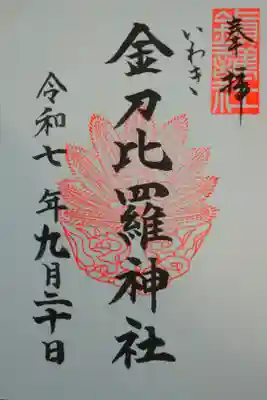 奉拝
いわき
金刀比羅神社
令和七年九月二十日